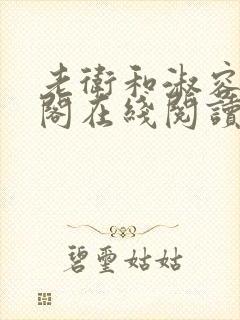 老衛和淑容
閣在綫閱讀
碧璽姑姑